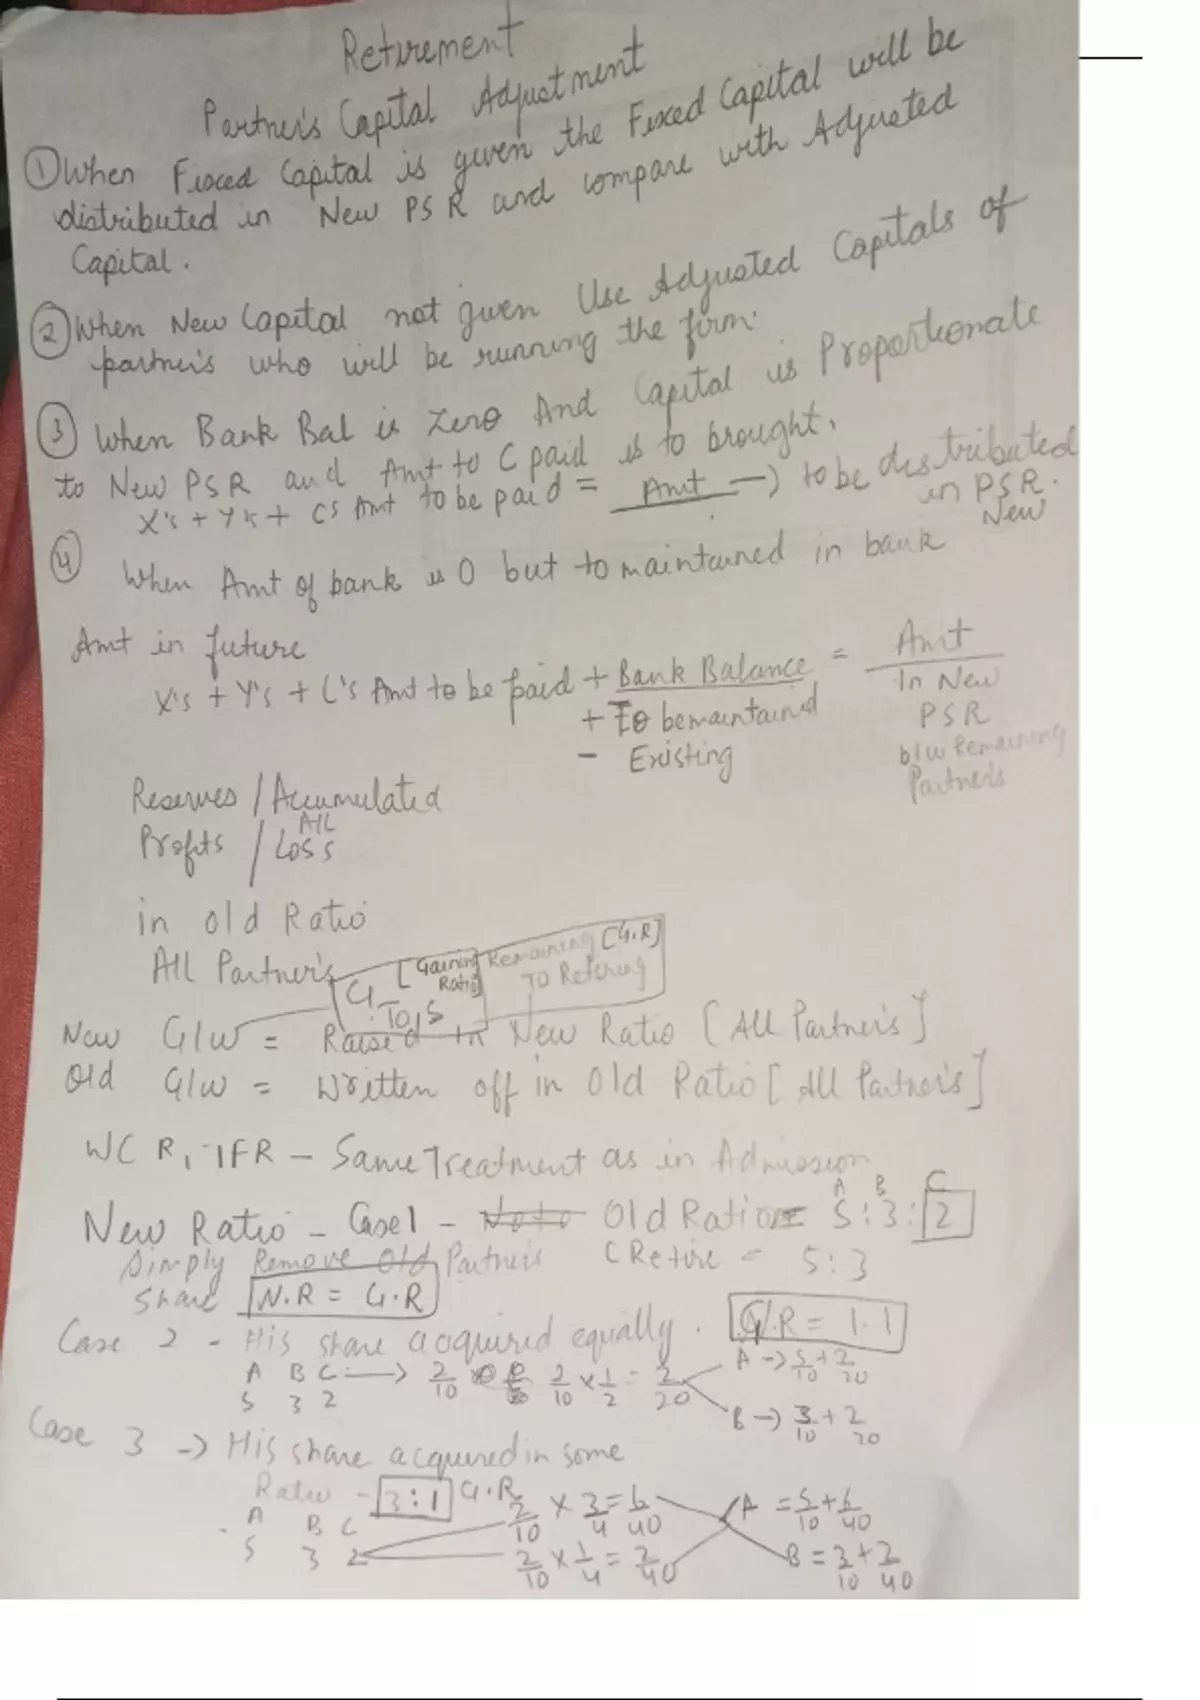 Retirement
Partner's Capital Adjustment
① When Fixed Capital is given the Fixed Capital will be
distributed in New PSR and compare with Adjusted
Capital.
② When New Capital not given Use Adjusted Capitals of
partners who will be running the firm.
③ When Bank Bal is Zero And Capital is Proportionate
to New PSR and Amt to C paid is to brought.
X's + Y's + C's Amt to be paid = Amt → to be distributed
in PSR.
New
④ When Amt of bank is 0 but to maintained in bank
Amt in future
X's + Y's + C's Amt to be paid + Bank Balance = Amt
+ To be maintained In New
- Existing PSR
b/w Remaining
Partners
Reserves / Accumulated
Profits / Loss A/L
in old Ratio
All Partner's
G [Gaining Ratio] Remaining [G.R]
To S TO Retiring
New G/W = Raised in New Ratio [All Partner's]
Old G/W = Written off in Old Ratio [All Partner's]
WC R, IFR - Same Treatment as in Admission
A B C
New Ratio - Case 1 - Old Ratio = 5 : 3 : 2
Simply Remove Old Partners C Retire = 5 : 3
Share N.R = G.R
Case 2 - His share acquired equally. G.R = 1.1
A B C → 2/10 2/10 × 1/2 = 2/20 A → 5/10 + 2/20
5 3 2 B → 3/10 + 2/20
Case 3 → His share acquired in some
Ratio - 3 : 1 G.R
A B C 2/10 × 3/4 = 6/40 A = 5/10 + 6/40
5 3 2 2/10 × 1/4 = 2/40 B = 3/10 + 2/40